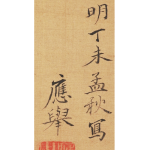 明丁未孟秋寫
應舉